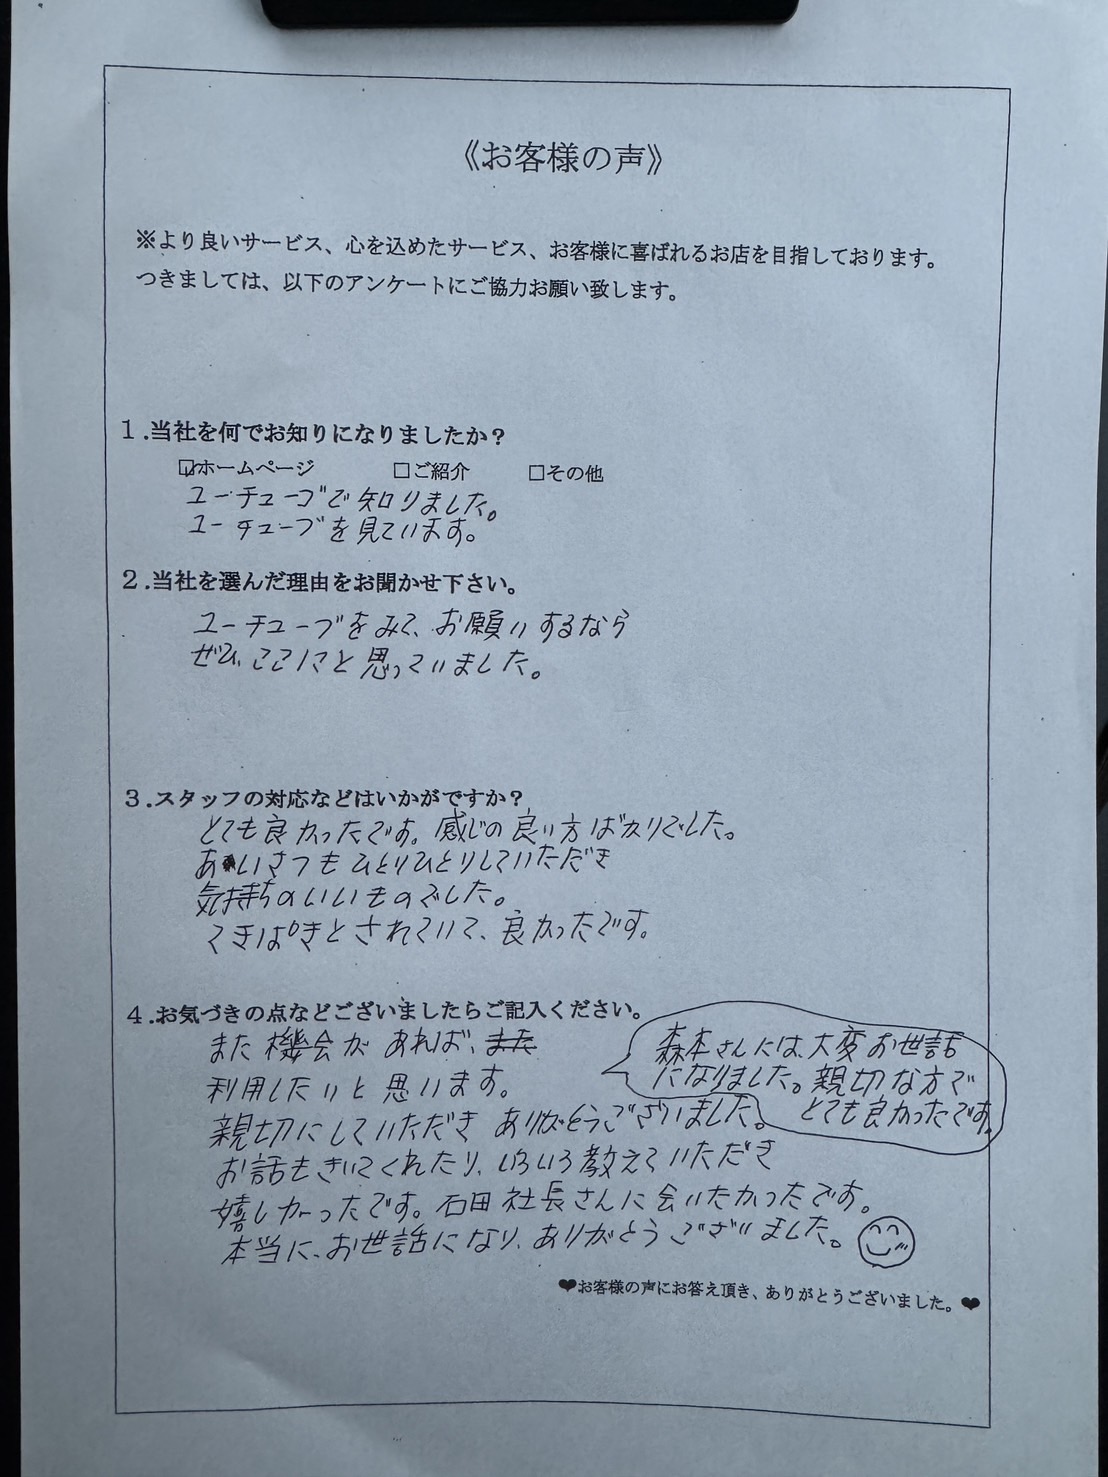 《お客様の声》
※より良いサービス、心を込めたサービス、お客様に喜ばれるお店を目指しております。
つきましては、以下のアンケートにご協力お願い致します。
1.当社を何でお知りになりましたか？
☑ホームページ □ご紹介 □その他
ユーチューブで知りました。
ユーチューブを見ています。
2.当社を選んだ理由をお聞かせ下さい。
ユーチューブをみて、お願いするなら
ぜひ、ここにと思っていました。
3.スタッフの対応などはいかがですか？
とても良かったです。感じの良い方ばかりでした。
あいさつもひとりひとりしていただき
気持ちのいいものでした。
てきぱきとされていて、良かったです。
4.お気づきの点などございましたらご記入ください。
また機会があれば、また
利用したいと思います。
親切にしていただきありがとうございました。
お話もきいてくれたり、いろいろ教えていただき
嬉しかったです。石田社長さんに会いたかったです。
本当に、お世話になり、ありがとうございました。
森本さんには、大変お世話
になりました。親切な方で
とても良かったです。
❤お客様の声にお答え頂き、ありがとうございました。❤